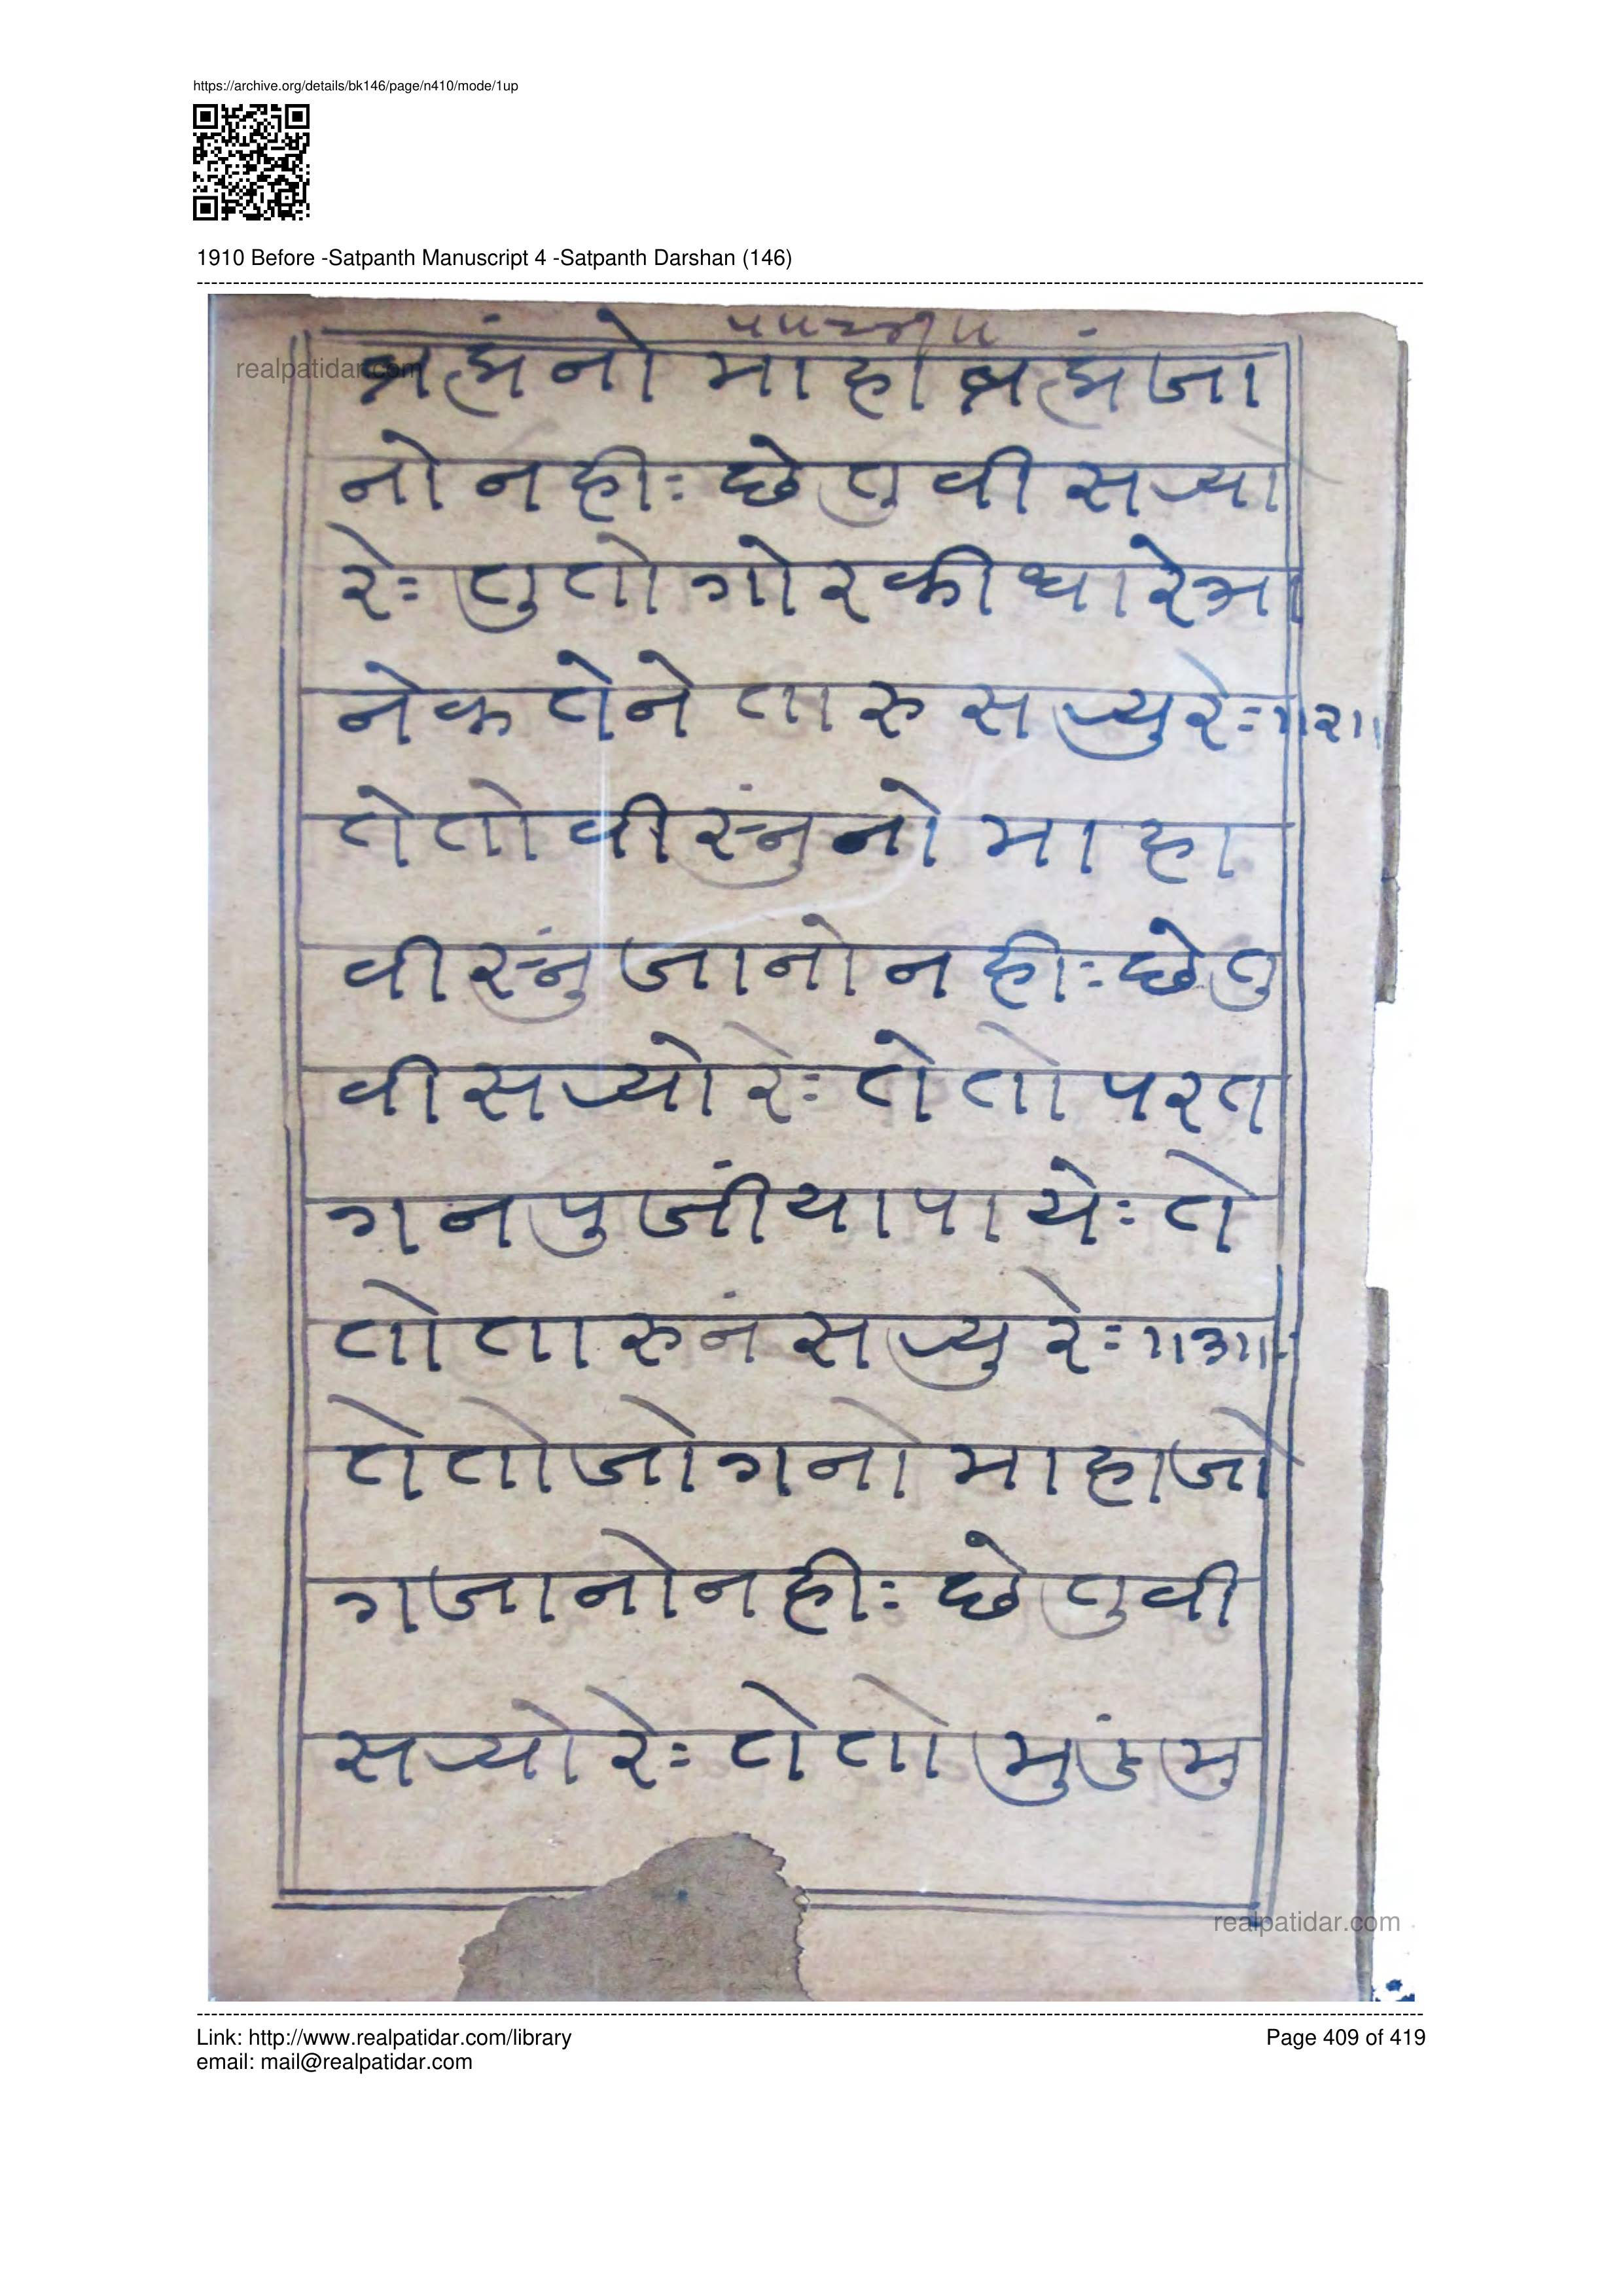 https://archive.org/details/bk146/page/n410/mode/1up
1910 Before -Satpanth Manuscript 4 -Satpanth Darshan (146)
realpatidar.com
ब्रह्मंनो माहा ब्रह्मं जा
नो नही: छे तु वी सर्‍यो
रे: तु तो गोरकी धारे भा
नेक तेने तारु सर्‍यु रे: ॥२॥
ते तो वीस्नुं नो माहा
वीस्नुं जानो नही: छे तु
वी सर्‍यो रे: ते तो परत
गन पुजीं या पाये: ते
तो तारु नं सर्‍यु रे: ॥३॥
ते तो जोगनो माहा जो
ग जानो नही: छे तु वी
सर्‍यो रे: ते तो मुडं मु
realpatidar.com
Link: http://www.realpatidar.com/library
Page 409 of 419
email: mail@realpatidar.com